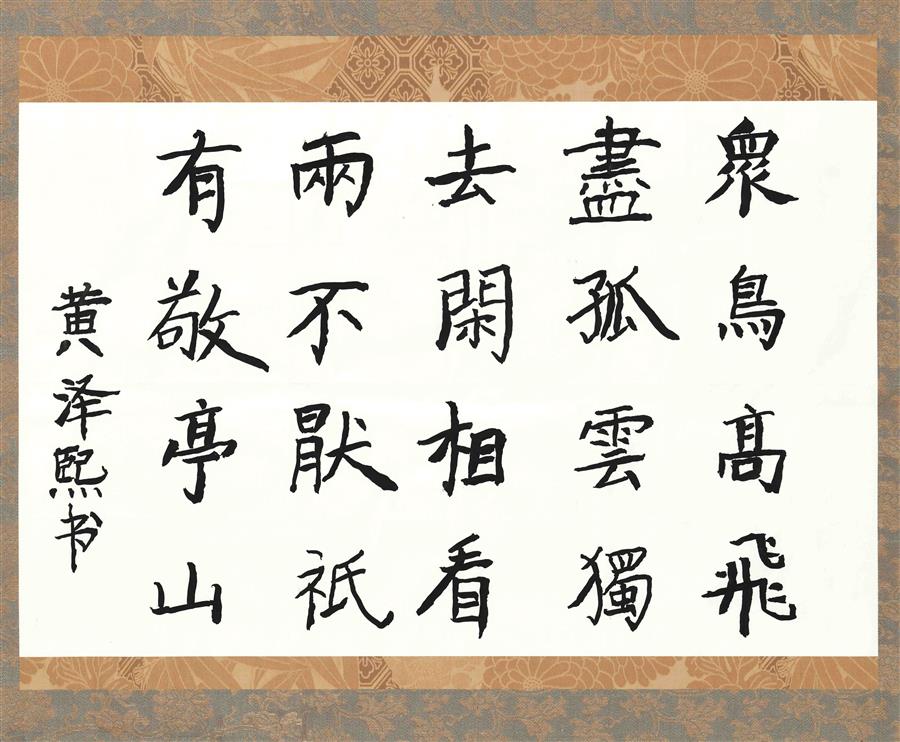 眾鳥高飛
盡孤雲獨
去閑相看
兩不猒祇
有敬亭山
黄泽熙书